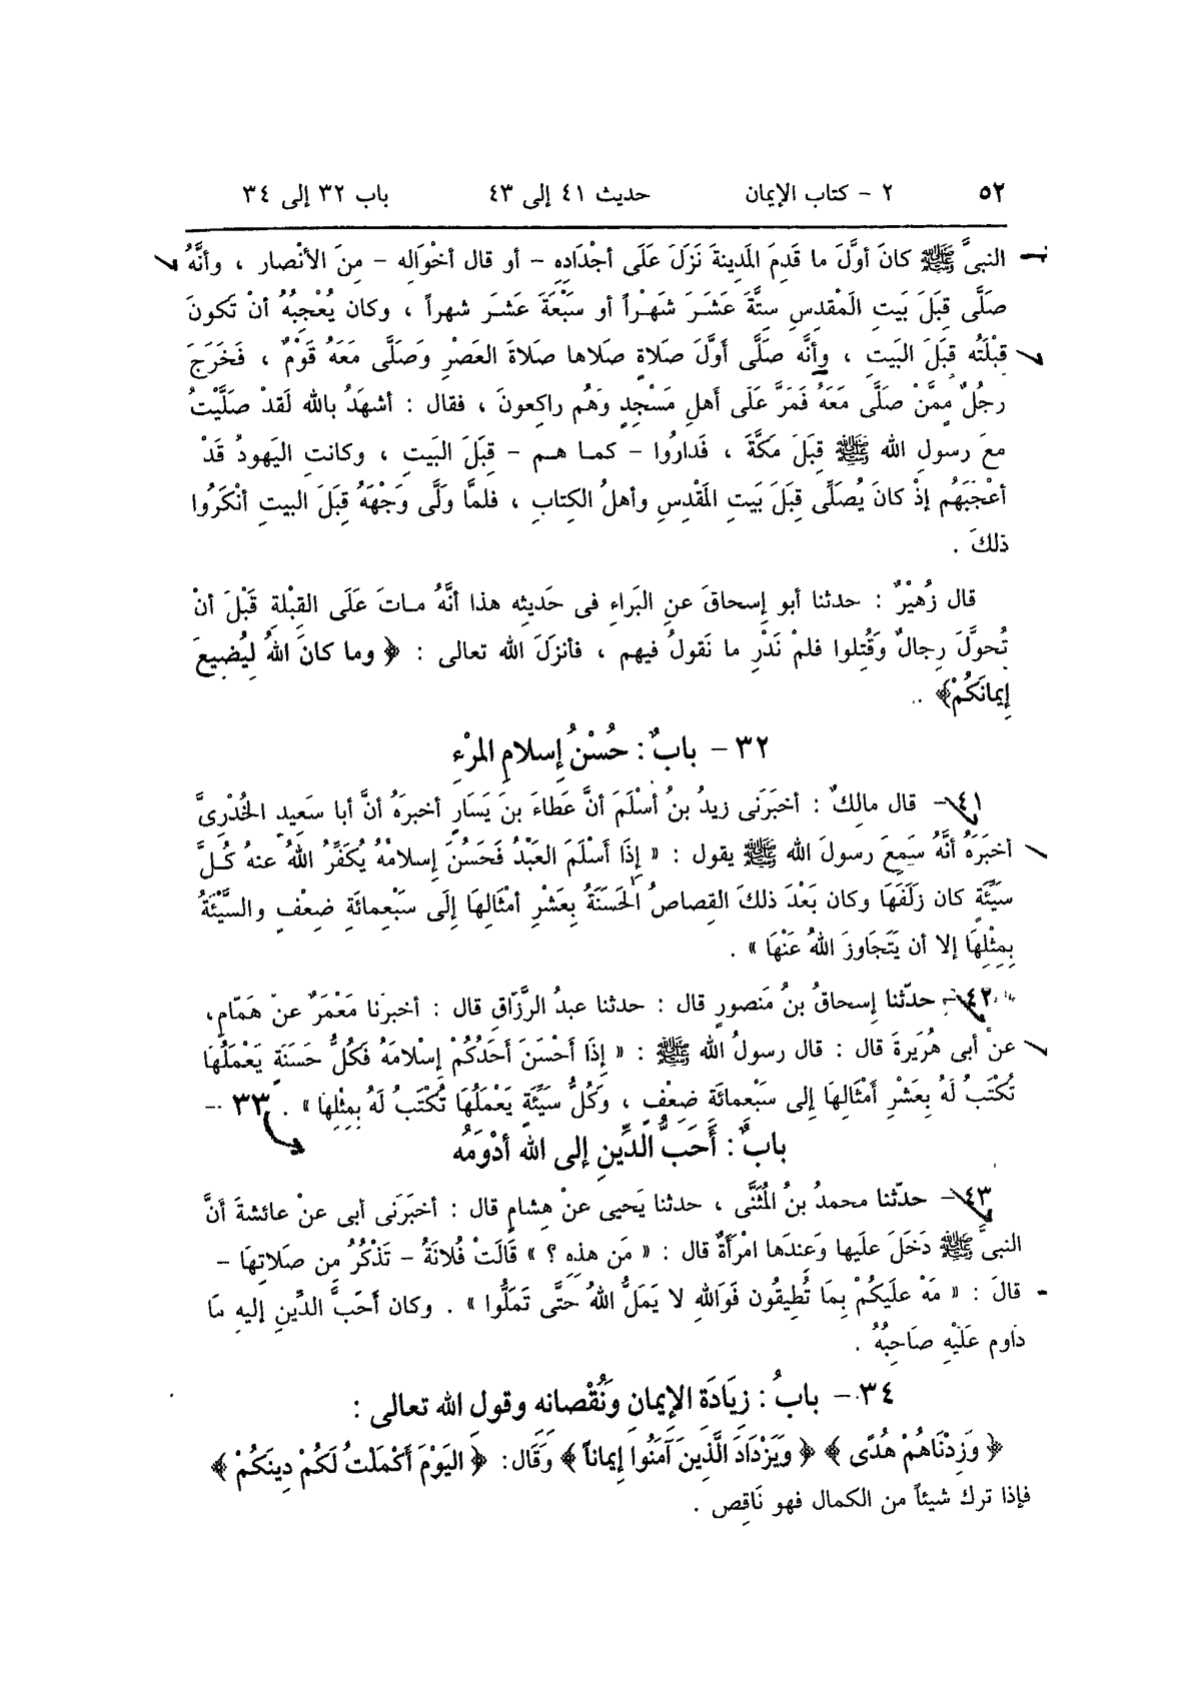 ٥٢ ٢ - كتاب الإيمان حديث ٤١ إلى ٤٣ باب ٣٢ إلى ٣٤
النبىَّ ﷺ كانَ أولَّ ما قَدِمَ المَدِينةَ نَزَلَ عَلَى أجْدَادِهِ - أو قال أخْوَاله - مِنَ الأنْصار ، وأنَّهُ
صَلَّى قِبَلَ بَيت المَقْدسِ سِتَّةَ عَشَـرَ شَهْـراً أو سَبْعَةَ عَشـرَ شهراً ، وكان يُعْجِبُهُ أنْ تَكونَ
قِبْلَتُه قِبَلَ البَيتِ ، وأنَّه صَلَّى أَوَّلَ صَلاةٍ صَلاها صلاةَ العَصْرِ وَصَلَّى مَعَهُ قَوْمٌ ، فَخَرَجَ
رجُلٌ مِمَّنْ صَلَّى مَعَهُ فَمَرَّ عَلَى أَهلِ مَسْجِدٍ وَهُم راكِعونَ ، فقال : أشهَدُ بالله لَقدْ صَلَّيْتُ
معَ رسولِ الله ﷺ قِبَلَ مَكَّةَ ، فَدارُوا - كمـا هـم - قِبَلَ البَيتِ ، وكانتِ اليَهودُ قَدْ
أعْجَبَهُم إذْ كانَ يُصَلِّى قِبَلَ بَيتِ المَقْدِسِ وأهلُ الكِتابِ ، فلمَّا وَلَّى وَجْهَهُ قِبَلَ البيتِ أنْكَرُوا
ذلكَ .
قال زُهَيْرٌ : حدثنا أبو إسحاقَ عنِ البَراءِ فى حَديثِه هذا أنَّهُ مـاتَ عَلَى القِبْلةِ قَبْلَ أنْ
تُحوَّلَ رِجالٌ وَقُتِلوا فلمْ نَدْرِ ما نَقولُ فيهم ، فأنزَلَ الله تعالى : ﴿ وما كانَ اللهُ لِيُضيعَ
إيمانَكُمْ﴾ .
٣٢ - بابٌ : حُسْنُ إسلامِ المرْءِ
٤١- قال مالِكٌ : أخبَرَنى زيدُ بنُ أسْلَمَ أنَّ عَطاءَ بنَ يَسَارٍ أخبرَهُ أنَّ أبا سَعِيدٍ الخُدْرِىَّ
أخبَرَهُ أنَّهُ سَمِعَ رسولَ الله ﷺ يقول : « إِذَا أَسْلَمَ العَبْدُ فَحَسُنَ إسلامُهُ يُكَفِّرُ اللهُ عنهُ كُـلَّ
سَيِّئَةٍ كان زَلَفَهَا وكان بَعْدَ ذلكَ القِصاصُ الحَسَنَةُ بِعَشْرِ أمْثَالِهَا إلَى سَبْعِمائَةِ ضِعْفٍ والسيَّئَةُ
بِمِثْلِهَا إلا أن يَتَجَاوزَ اللهُ عَنْهَا » .
٤٢- حدّثنا إسحاقُ بنُ مَنصورٍ قال : حدثنا عبدُ الرزَّاقِ قال : أخبرَنا مَعْمَرٌ عنْ هَمّامٍ،
عنْ أبى هُرَيرةَ قال : قال رسولُ الله ﷺ : « إِذَا أَحْسَنَ أَحَدُكُمْ إِسْلامَهُ فَكُلُّ حَسَنَةٍ يَعْمَلُهَا
تُكْتَبُ لَهُ بِعَشْرِ أَمْثَالِهَا إلى سَبْعمائَةِ ضِعْفٍ ، وَكُلُّ سَيِّئَةٍ يَعْمَلُهَا تُكْتَبُ لَهُ بِمِثْلِهَا » . ٣٣ -
بابٌ : أَحَبُّ الدِّينِ إلى الله أدْوَمُه
٤٣- حدّثنا محمدُ بنُ المُثَنَّى ، حدثنا يَحيى عنْ هِشامٍ قال : أخبَرَنى أبى عنْ عائشةَ أنَّ
النبىَّ ﷺ دَخَلَ علَيها وَعندَها امْرَأَةٌ قال : « مَن هذهِ ؟ » قَالَتْ فُلانَةُ - تَذْكُرُ من صَلاتِهَا -
قالَ : « مَهْ علَيكُمْ بِمَا تُطِيقُون فَوَاللهِ لا يَمَلُّ اللهُ حَتَّى تَمَلُّوا » . وكان أَحَبَّ الدِّينِ إليهِ مَا
دَاوم عَلَيْهِ صَاحِبُهُ .
٣٤ - بابُ : زِيَادَة الإيمانِ وَنُقْصانِه وقولِ الله تعالى :
﴿ وَزِدْنَاهُمْ هُدًى ﴾ ﴿ وَيَزْدَادَ الَّذِينَ آمَنُوا إيماناً ﴾ وَقَال: ﴿ اليَوْمَ أَكْمَلْتُ لَكُمْ دِينَكُمْ ﴾
فإذا ترك شيئاً من الكمال فهو نَاقِص .